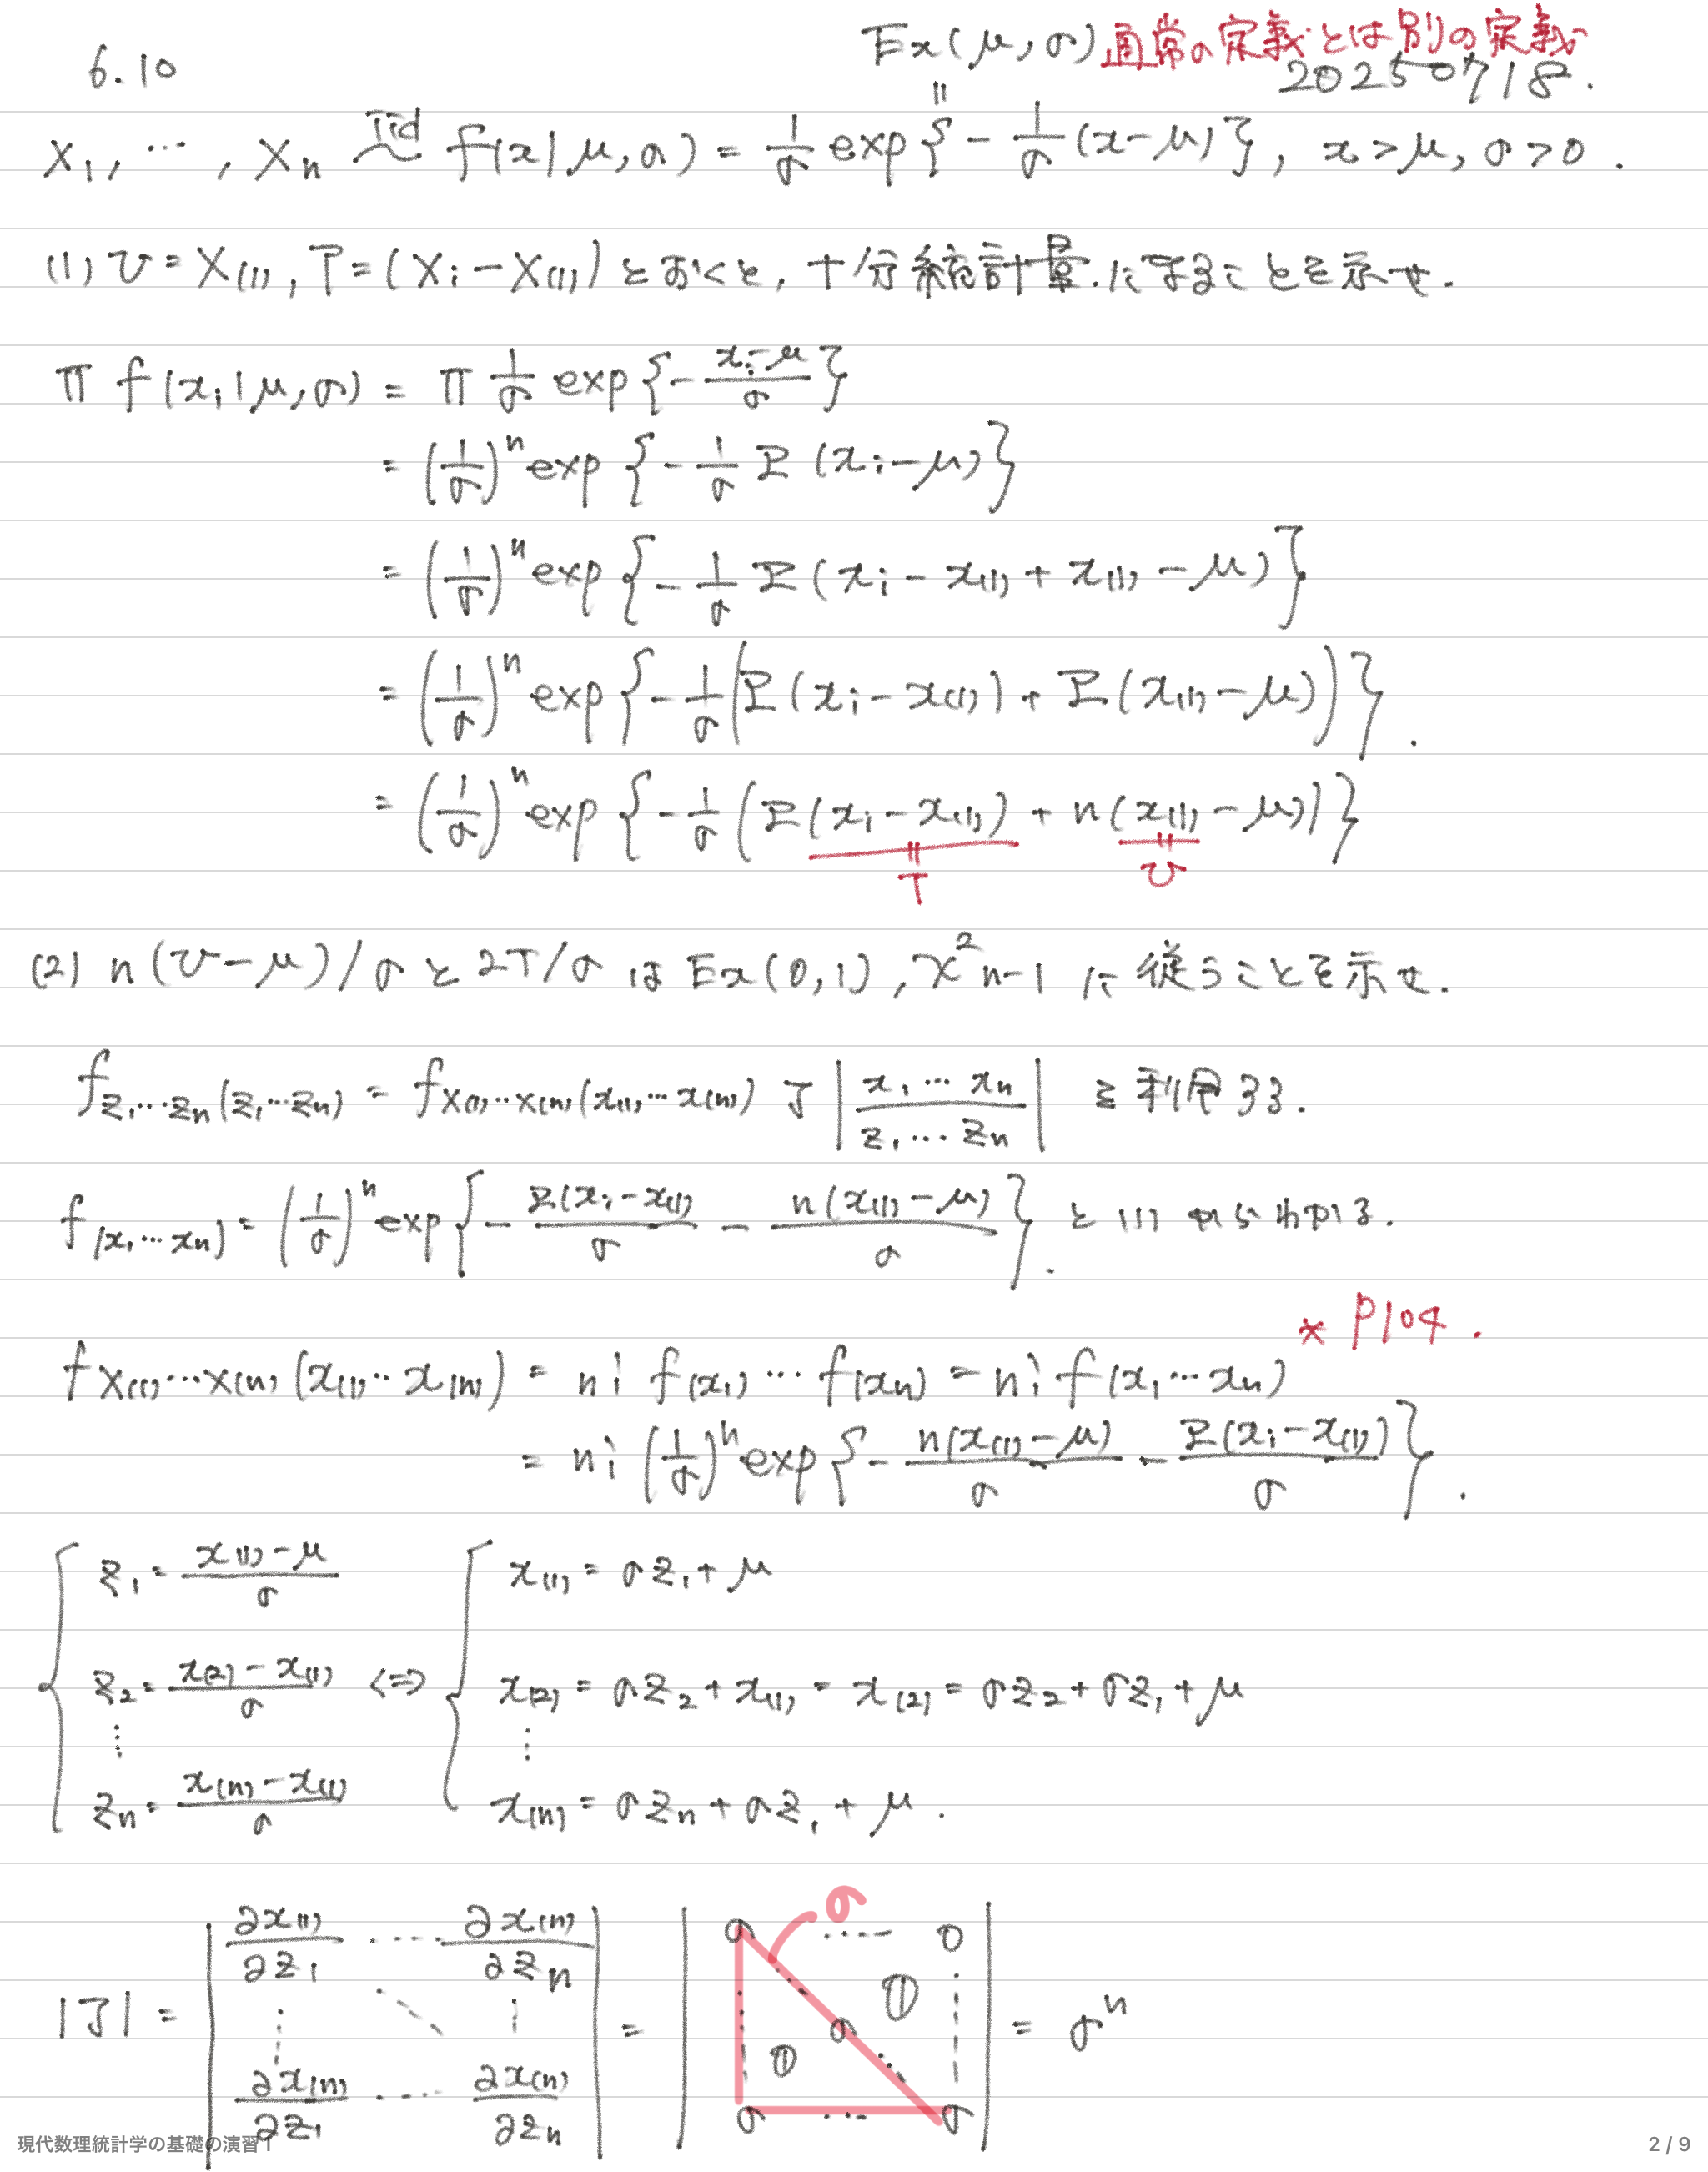 6.10
Ex(μ,σ) 通常の定義とは別の定義
20250718.
X₁, …, Xₙ iid〜 f(x|μ,σ) = 1/σ exp{ - 1/σ (x-μ) }, x>μ, σ>0.
(1) U = X₍₁₎, T = (Xᵢ - X₍₁₎) とおくと, 十分統計量.になることを示せ.
Π f(xᵢ|μ,σ) = Π 1/σ exp{ - (xᵢ-μ)/σ }
= (1/σ)ⁿ exp{ - 1/σ Σ (xᵢ-μ) }
= (1/σ)ⁿ exp{ - 1/σ Σ (xᵢ - x₍₁₎ + x₍₁₎ - μ) }
= (1/σ)ⁿ exp{ - 1/σ ( Σ(xᵢ - x₍₁₎) + Σ(x₍₁₎ - μ) ) }.
= (1/σ)ⁿ exp{ - 1/σ ( Σ(xᵢ - x₍₁₎) + n(x₍₁₎ - μ) ) }
= T = U
(2) n(U-μ)/σ と 2T/σ は Ex(0,1), χ²n-1 に従うことを示せ.
f z₁…zₙ(z₁…zₙ) = f X₍₁₎…X₍ₙ₎(x₍₁₎…x₍ₙ₎) J | x₁…xₙ / z₁…zₙ | を利用する.
f(x₁…xₙ) = (1/σ)ⁿ exp{ - Σ(xᵢ-x₍₁₎)/σ - n(x₍₁₎-μ)/σ }. と(1)からわかる.
* P104.
f X₍₁₎…X₍ₙ₎(x₍₁₎…x₍ₙ₎) = n! f(x₁)…f(xₙ) = n! f(x₁…xₙ)
= n! (1/σ)ⁿ exp{ - n(x₍₁₎-μ)/σ - Σ(xᵢ-x₍₁₎)/σ }.
z₁ = (x₍₁₎-μ)/σ x₍₁₎ = σz₁+μ
z₂ = (x₍₂₎-x₍₁₎)/σ ⇔ x₍₂₎ = σz₂+x₍₁₎ = x₍₂₎ = σz₂+σz₁+μ
⋮ ⋮
zₙ = (x₍ₙ₎-x₍₁₎)/σ x₍ₙ₎ = σzₙ+σz₁+μ.
σ
∂x₍₁₎/∂z₁ … ∂x₍ₙ₎/∂zₙ σ … 0
|J| = | ⋮ ⋱ ⋮ | = | ⋮ 0 σ 0 ⋮ | = σⁿ
∂x₍ₙ₎/∂z₁ … ∂x₍ₙ₎/∂zₙ σ … σ
現代数理統計学の基礎の演習1
2 / 9